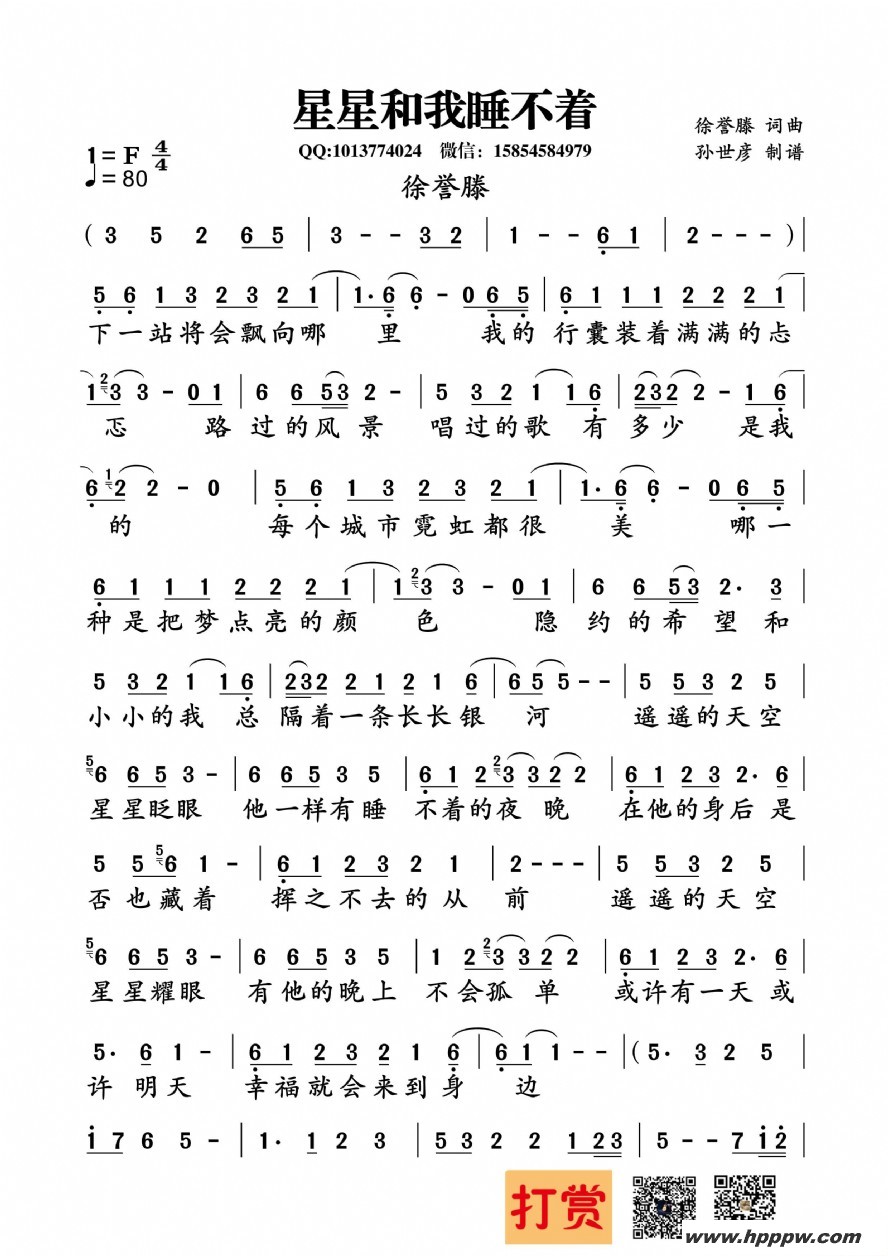 星星和我睡不着
1=F 4/4
♩=80
QQ:1013774024 微信：15854584979
徐誉滕 词曲
孙世彦 制谱
徐誉滕
( 3 5 2 6 5 | 3 - - 3 2 | 1 - - 6 1 | 2 - - - ) |
5 6 1 3 2 3 2 1 | 1· 6 6 - 0 6 5 | 6 1 1 1 2 2 2 1
下一站将会飘向哪 里 我的 行囊装着满满的忐
1 2 3 3 - 0 1 | 6 6 5 3 2 - | 5 3 2 1 1 6 | 2 3 2 2 - 1 6
忑 路过的风景 唱过的歌 有多少 是我
6 1 2 2 - 0 | 5 6 1 3 2 3 2 1 | 1· 6 6 - 0 6 5 |
的 每个城市霓虹都很 美 哪一
6 1 1 1 2 2 2 1 | 1 2 3 3 - 0 1 | 6 6 5 3 2· 3 |
种是把梦点亮的颜 色 隐约的希望和
5 3 2 1 1 6 | 2 3 2 2 1 2 1 6 | 6 5 5 - - | 5 5 3 2 5 |
小小的我 总 隔着一条长长银 河 遥遥的天空
5 6 6 5 3 - | 6 6 5 3 5 | 6 1 2 2 3 3 2 2 | 6 1 2 3 2· 6 |
星星眨眼 他一样有睡 不着的夜 晚 在他的身后是
5 5 5 6 1 - | 6 1 2 3 2 1 | 2 - - - | 5 5 3 2 5 |
否也藏着 挥之不去的从 前 遥遥的天空
5 6 6 5 3 - | 6 6 5 3 5 | 1 2 2 3 3 2 2 | 6 1 2 3 2· 6 |
星星耀眼 有他的晚上 不会孤 单 或许有一天或
5· 6 1 - | 6 1 2 3 2 1 6 | 6 1 1 - - | ( 5· 3 2 5 |
许明天 幸福就会来到身 边
1 7 6 5 - | 1· 1 2 3 | 5 3 2 2 1 2 3 | 5 - - 7 1 2 |
打赏
www.hpppw.com